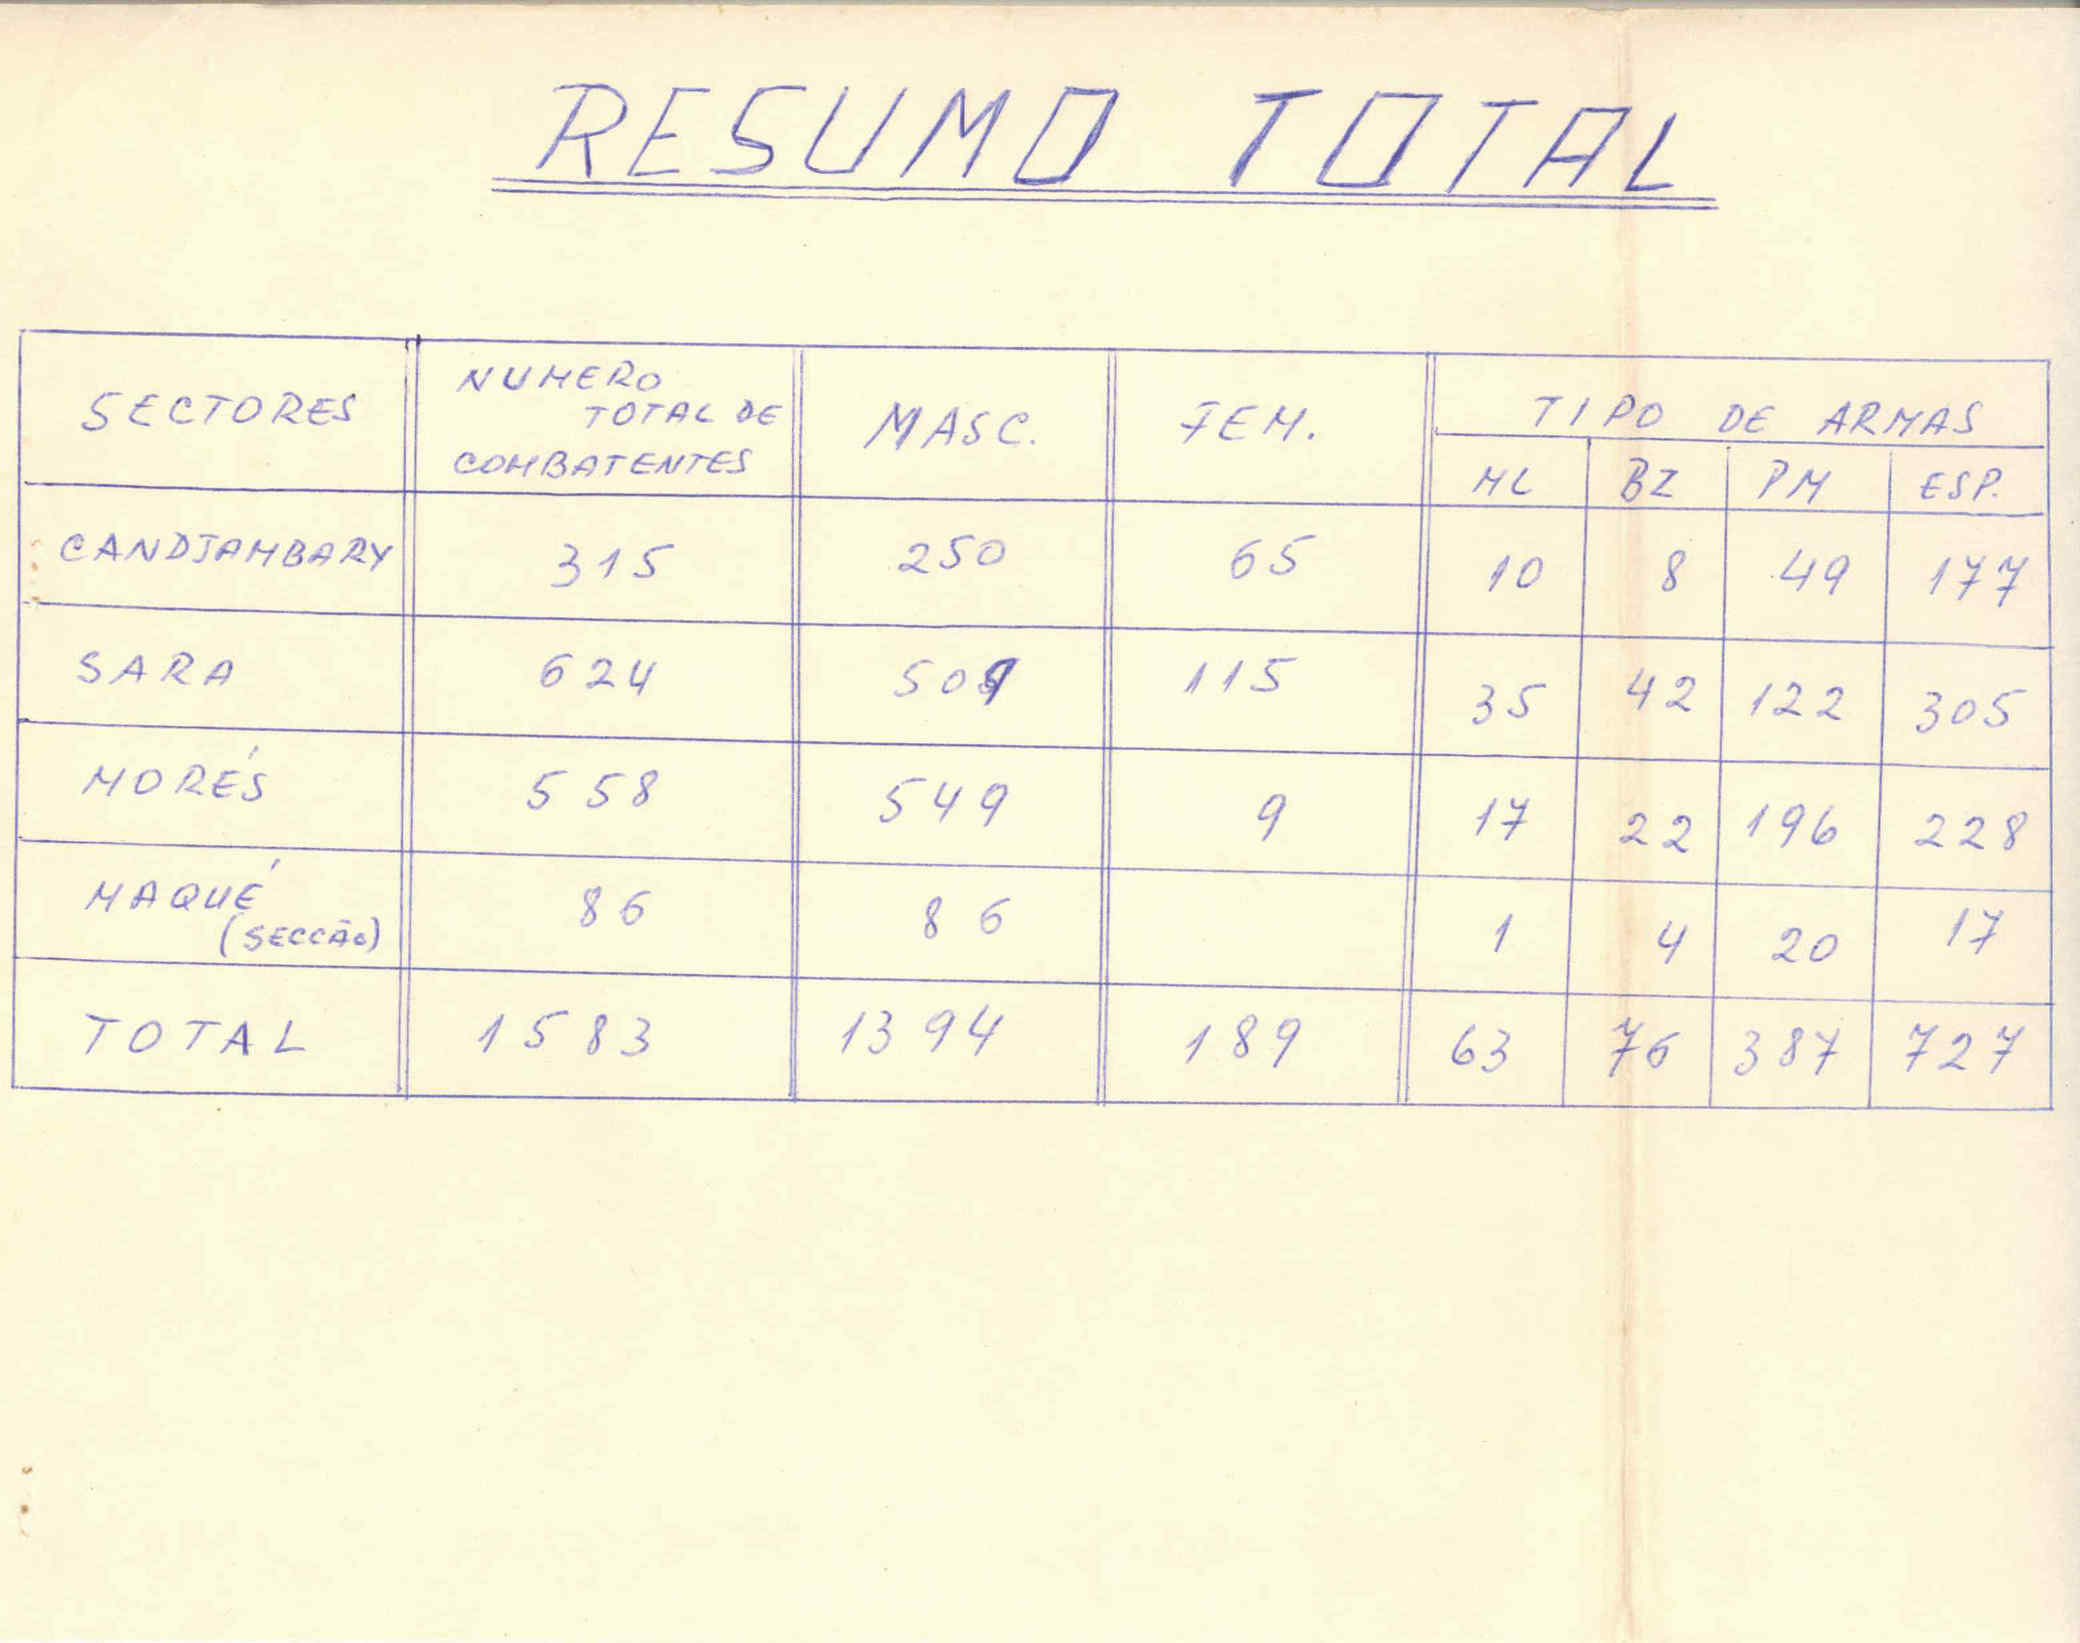 RESUMO TOTAL
SECTORES NUMERO TOTAL DE COMBATENTES MASC. FEM. TIPO DE ARMAS
ML BZ PM ESP.
CANDJAMBARY 315 250 65 10 8 49 177
SARA 624 509 115 35 42 122 305
MORÉS 558 549 9 17 22 196 228
MAQUÉ (SECCÃO) 86 86 1 4 20 17
TOTAL 1583 1394 189 63 76 387 727